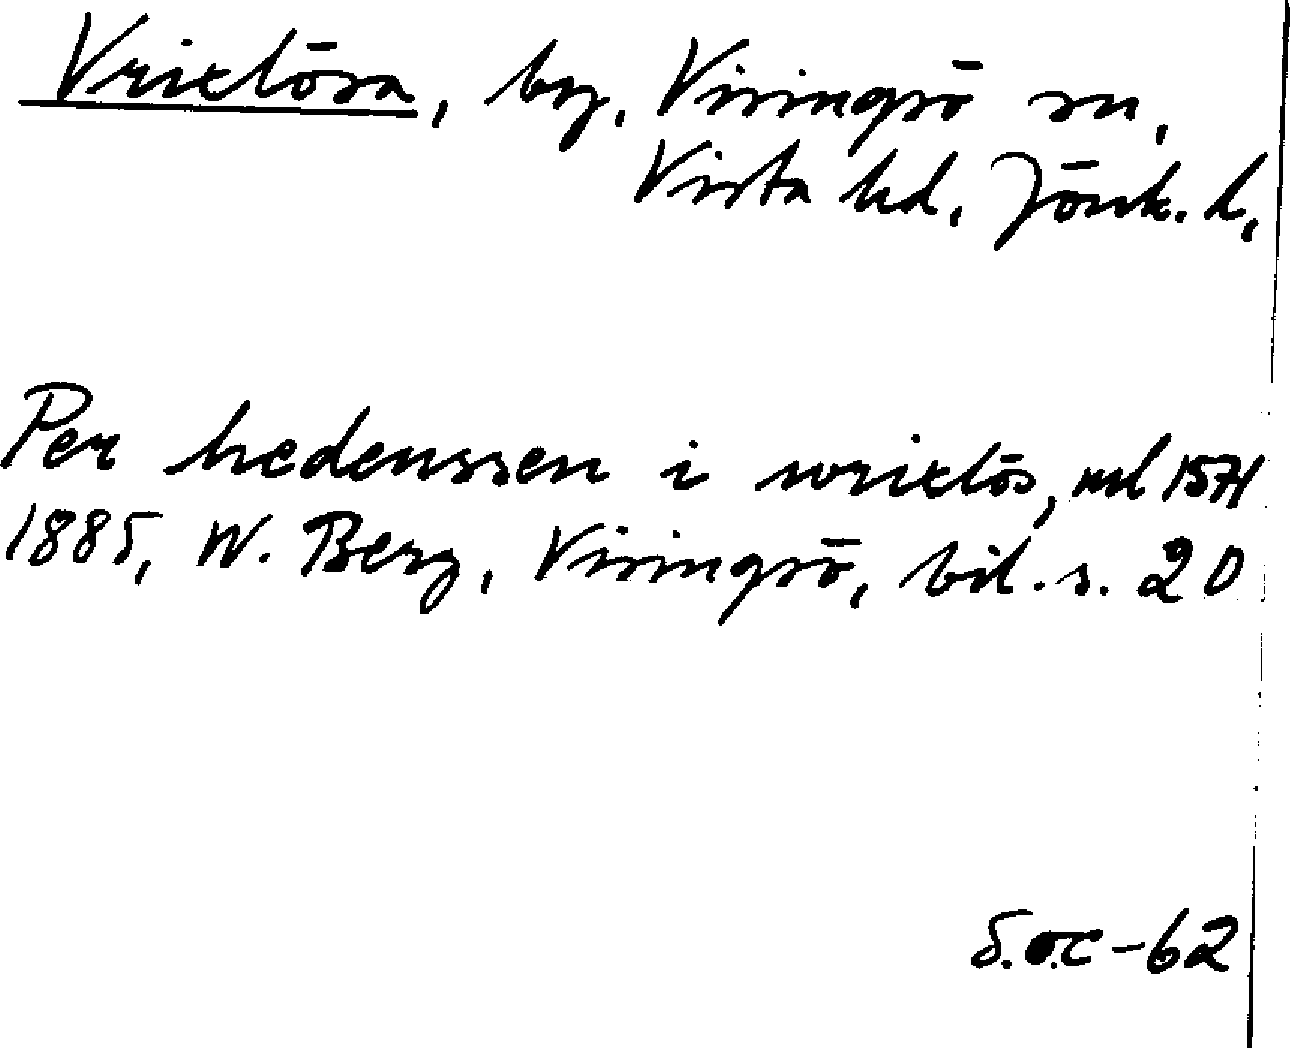 Vrixlösa, by, Visingsö sn,
Vista hd, Jönk. l,
Per hedenssen i wrixlös, 1571
1885, W. Berg, Visingsö, bil. s. 20
S.o.c-62